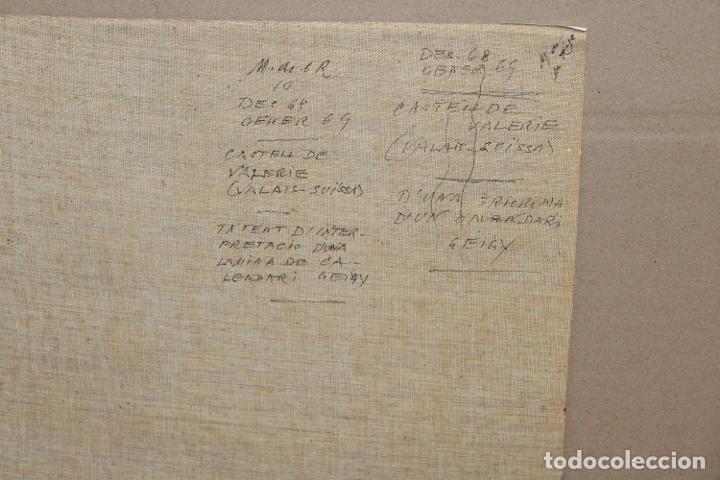 M. de L R
10
DEC 68
GENER 69
CASTELL DE
VALERIE
(VALAIS-SUÏSSA)
INTENT D'INTER-
PRETACIO DUNA
LAMINA DE CA-
LENDARI GEIGY
DES. 68
GENER 69
CASTELL DE
VALERIE
(VALAIS-SUÏSSA)
D'UNA TRICROMIA
D'UN CALENDARI
GEIGY
todocoleccion.net